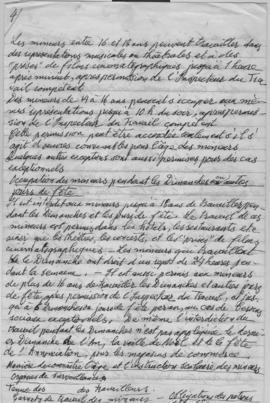 4)
Les mineurs entre 16 et 18 ans peuvent travailler dans
des représentations musicales ou théâtrales et à des
"prises" de films cinématographiques jusqu'à 1 heure
après minuit, après permission de l'Inspecteur du Tra-
vail compétent
Des mineurs de 14 à 16 ans peuvent s'occuper aux mê-
mes représentations jusqu'à 10 h. du soir, après permis-
sion de l'Inspecteur du Travail compétent.
Cette permission peut être accordée s'il
agit d'œuvres convenables pour l'âge des mineurs
Quelques autres exceptions sont aussi permises pour des cas
exceptionnels.
Occupation des mineurs pendant les Dimanches ou autres
jours de fête
Il est interdit aux mineurs jusqu'à 18 ans de travailler pen-
dant les dimanches et les jours de fête. Le travail de ces
mineurs est permis dans les hôtels, les restaurants et
les théâtres, les concerts, et les "prises" de films
cinématographiques. Les mineurs qui travaillent
le Dimanche ont droit d'un repos de 24 heures pen-
dant la semaine. Il est aussi permis aux mineurs
de plus de 16 ans de travailler les Dimanches et autres jours
de fête après permission de l'Inspecteur du Travail, et jus-
qu'à 6 dimanches ou jours de fête par an, au cas de besoins
sociaux exceptionnels. De même l'interdiction du
travail pendant les Dimanches n'est pas appliquée le der-
nier Dimanche de l'An, la veille de Noël et de la fête
de l'Annonciation, pour les magasins de commerce.
Organes de surveillance
Tenue des travailleurs.
Carnets de travail des mineurs - Obligation des patrons